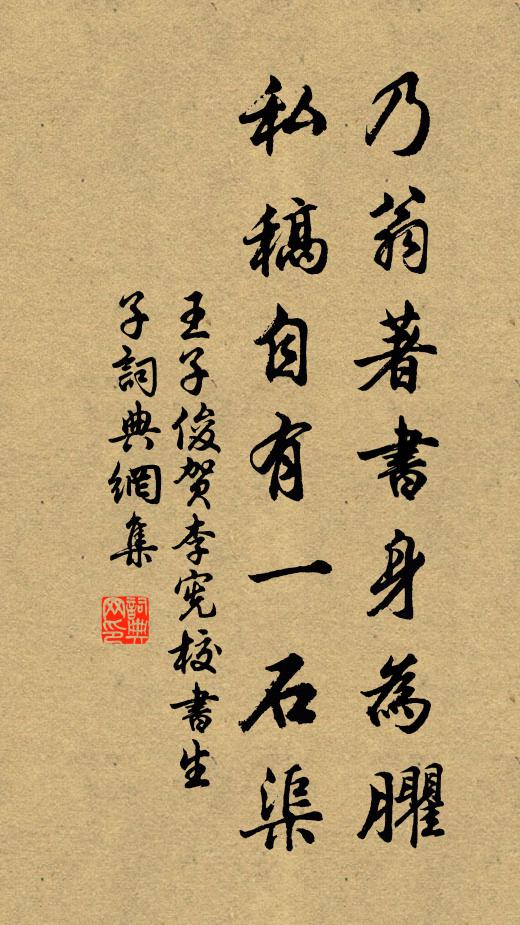 乃翁著書身為臞
私稿自有一石渠
王子俊賀李宪校書生
子詞典網集
詞典网印